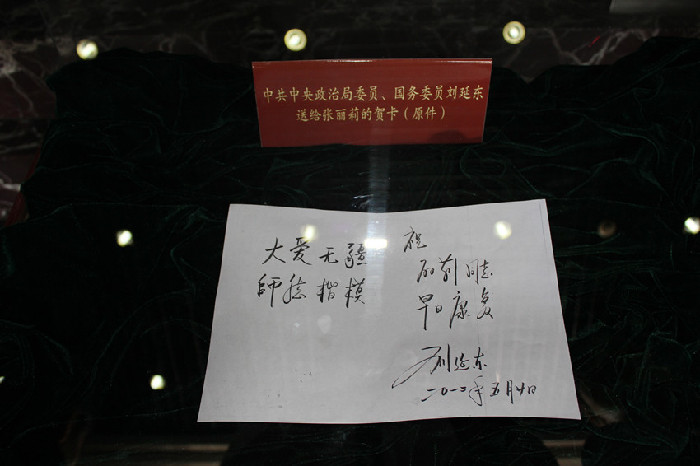 中共中央政治局委员、国务委员刘延东
送给张丽莉的贺卡（原件）
大爱无疆
師德楷模
祝
丽莉同志
早日康复
刘延东
二〇一二年五月